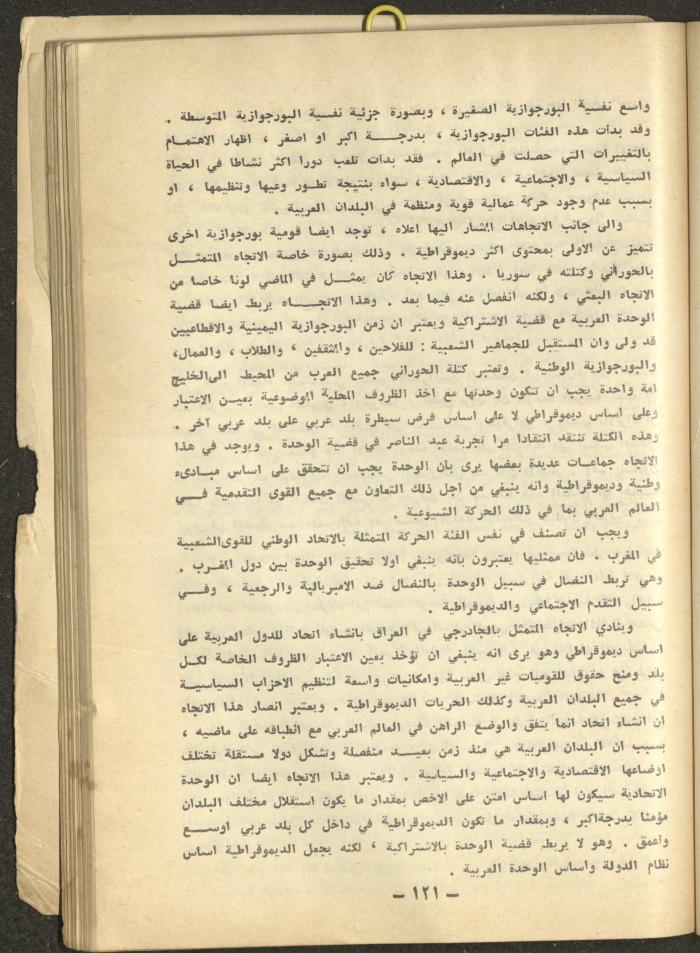 واسع نفسية البورجوازية الصغيرة ، وبصورة جزئية نفسية البورجوازية المتوسطة .
وقد بدأت هذه الفئات البورجوازية ، بدرجة اكبر او اصغر ، اظهار الاهتمام
بالتغييرات التي حصلت في العالم . فقد بدأت تلعب دورا اكثر نشاطا في الحياة
السياسية ، والاجتماعية ، والاقتصادية ، سواء بنتيجة تطور وعيها وتنظيمها ، او
بسبب عدم وجود حركة عمالية قوية ومنظمة في البلدان العربية .
والى جانب الاتجاهات المشار اليها اعلاه ، توجد ايضا قومية بورجوازية اخرى
تتميز عن الاولى بمحتوى اكثر ديموقراطية . وذلك بصورة خاصة الاتجاه المتمثل
بالحوراني وكتلته في سوريا . وهذا الاتجاه كان يمثل في الماضي لونا خاصا من
الاتجاه البعثي ، ولكنه انفصل عنه فيما بعد . وهذا الاتجاه يربط ايضا قضية
الوحدة العربية مع قضية الاشتراكية ويعتبر ان زمن البورجوازية اليمينية والاقطاعيين
قد ولى وان المستقبل للجماهير الشعبية : للفلاحين ، والمثقفين ، والطلاب ، والعمال،
والبورجوازية الوطنية . وتعتبر كتلة الحوراني جميع العرب من المحيط الىالخليج
امة واحدة يجب ان تتكون وحدتها مع اخذ الظروف المحلية الموضوعية بعين الاعتبار
وعلى اساس ديموقراطي لا على اساس فرض سيطرة بلد عربي على بلد عربي آخر .
وهذه الكتلة تنتقد انتقادا مرا تجربة عبد الناصر في قضية الوحدة . ويوجد في هذا
الاتجاه جماعات عديدة بعضها يرى بأن الوحدة يجب ان تتحقق على اساس مبادىء
وطنية وديموقراطية وانه ينبغي من اجل ذلك التعاون مع جميع القوى التقدمية في
العالم العربي بما في ذلك الحركة الشيوعية .
ويجب ان تصنف في نفس الفئة الحركة المتمثلة بالاتحاد الوطني للقوىالشعبية
في المغرب . فان ممثليها يعتبرون بانه ينبغي اولا تحقيق الوحدة بين دول المغرب .
وهي تربط النضال في سبيل الوحدة بالنضال ضد الامبريالية والرجعية ، وفي
سبيل التقدم الاجتماعي والديموقراطية .
وينادي الاتجاه المتمثل بالجادرجي في العراق بانشاء اتحاد للدول العربية على
اساس ديموقراطي وهو يرى انه ينبغي ان تؤخذ بعين الاعتبار الظروف الخاصة لكل
بلد ومنح حقوق للقوميات غير العربية وامكانيات واسعة لتنظيم الاحزاب السياسية
في جميع البلدان العربية وكذلك الحريات الديموقراطية . ويعتبر انصار هذا الاتجاه
ان انشاء اتحاد انما يتفق والوضع الراهن في العالم العربي مع انطباقه على ماضيه ،
بسبب ان البلدان العربية هي منذ زمن بعيد منفصلة وتشكل دولا مستقلة تختلف
اوضاعها الاقتصادية والاجتماعية والسياسية . ويعتبر هذا الاتجاه ايضا ان الوحدة
الاتحادية سيكون لها اساس امتن على الاخص بمقدار ما يكون استقلال مختلف البلدان
مؤمنا بدرجةاكبر ، وبمقدار ما تكون الديموقراطية في داخل كل بلد عربي اوسع
واعمق . وهو لا يربط قضية الوحدة بالاشتراكية ، لكنه يجعل الديموقراطية اساس
نظام الدولة واساس الوحدة العربية .
– ١٢١ –